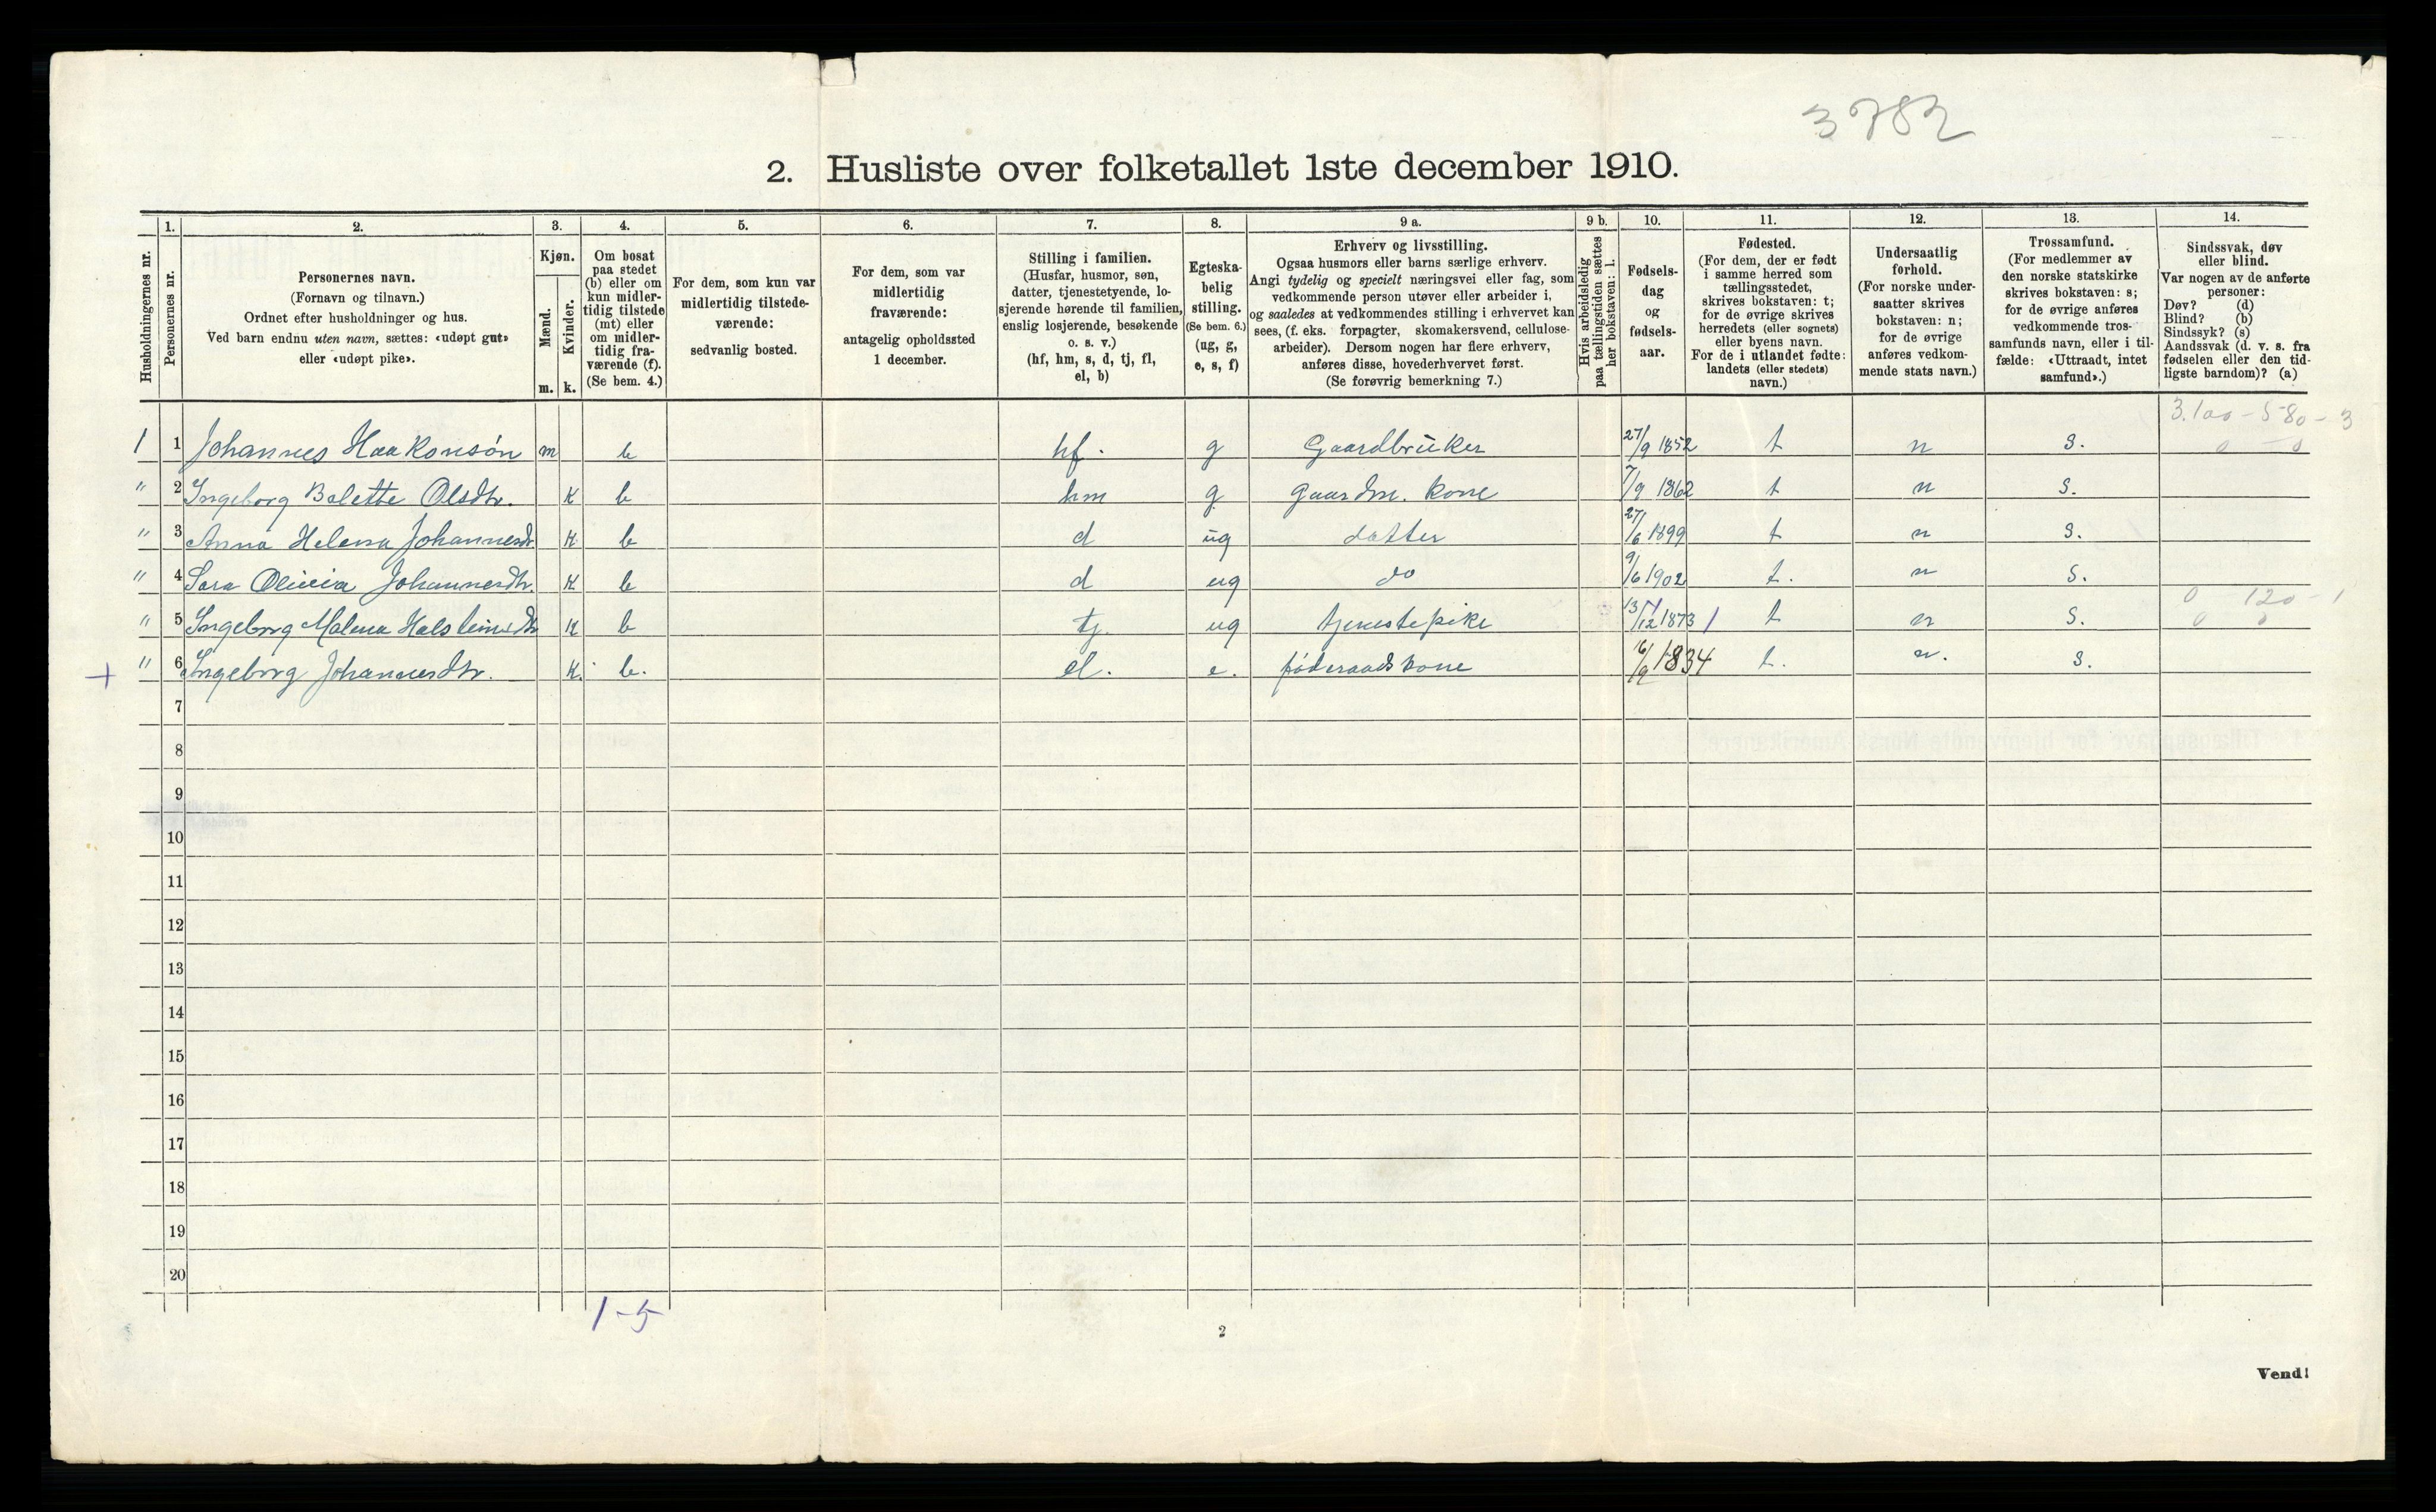 3782
2. Husliste over folketallet 1ste december 1910.
Husholdningernes nr.
1.
Personernes nr.
2.
Personernes navn.
(Fornavn og tilnavn.)
Ordnet efter husholdninger og hus.
Ved barn endnu uten navn, sættes: «udøpt gut»
eller «udøpt pike».
3.
Kjøn.
Mænd.
Kvinder.
m. k.
4.
Om bosat
paa stedet
(b) eller om
kun midler-
tidig tilstede
(mt) eller
om midler-
tidig fra-
værende (f).
(Se bem. 4.)
5.
For dem, som kun var
midlertidig tilstede-
værende:
sedvanlig bosted.
6.
For dem, som var
midlertidig
fraværende:
antagelig opholdssted
1 december.
7.
Stilling i familien.
(Husfar, husmor, søn,
datter, tjenestetyende, lo-
sjerende hørende til familien,
enslig losjerende, besøkende
o. s. v.)
(hf, hm, s, d, tj, fl,
el, b)
8.
Egteska-
belig
stilling.
(Se bem. 6.)
(ug, g,
e, s, f)
9 a.
Erhverv og livsstilling.
Ogsaa husmors eller barns særlige erhverv.
Angi tydelig og specielt næringsvei eller fag, som
vedkommende person utøver eller arbeider i,
og saaledes at vedkommendes stilling i erhvervet kan
sees, (f. eks. forpagter, skomakersvend, cellulose-
arbeider). Dersom nogen har flere erhverv,
anføres disse, hovederhvervet først.
(Se forøvrig bemerkning 7.)
9 b.
Hvis arbeidsledig
paa tællingstiden sættes
her bokstaven: l.
10.
Fødsels-
dag
og
fødsels-
aar.
11.
Fødested.
(For dem, der er født
i samme herred som
tællingsstedet,
skrives bokstaven: t;
for de øvrige skrives
herredets (eller sognets)
eller byens navn.
For de i utlandet fødte:
landets (eller stedets)
navn.)
12.
Undersaatlig
forhold.
(For norske under-
saatter skrives
bokstaven: n;
for de øvrige
anføres vedkom-
mende stats navn.)
13.
Trossamfund.
(For medlemmer av
den norske statskirke
skrives bokstaven: s;
for de øvrige anføres
vedkommende tros-
samfunds navn, eller i til-
fælde: «Uttraadt, intet
samfund».)
14.
Sindssvak, døv
eller blind.
Var nogen av de anførte
personer:
Døv? (d)
Blind? (b)
Sindssyk? (s)
Aandssvak (d. v. s. fra
fødselen eller den tid-
ligste barndom)? (a)
3.100 - 580 - 3
0 - 0
1 1 Johannes Haakonsøn m b hf. g Gaardbruker 27/9 1852 t n s.
" 2 Ingeborg Bolette Olsdtr. k b hm g gaardm. kone 7/9 1862 t n s.
" 3 Anna Helena Johannesdr k b d ug datter 27/6 1899 t n s.
" 4 Sara Olivia Johannesdtr. k b d ug do 9/6 1902 t. n s.
0 120 - 1
0 0
" 5 Ingeborg Malena Halsteinsdtr k b tj. ug tjenestepike 13/12 1873 t n s.
+ " 6 Ingeborg Johannesdtr. k. b. el. e. føderaadskone 16/9 1834 t. n. s.
7
8
9
10
11
12
13
14
15
16
17
18
19
20
1-5
2
Vend!